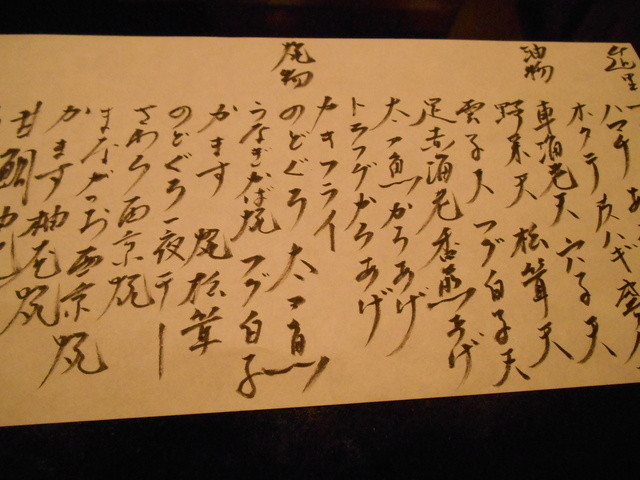 油物
車海老天 穴子天
野菜天 松茸天
雲子天 フグ白子天
足赤海老香煎あげ
太刀魚からあげ
トラフグからあげ
カキフライ
焼物
のどぐろ 太刀魚
うなぎかば焼 フグ白子
かます 焼松茸
のどぐろ一夜干し
さわら西京焼
まながつお西京焼
かます柚庵焼
甘鯛